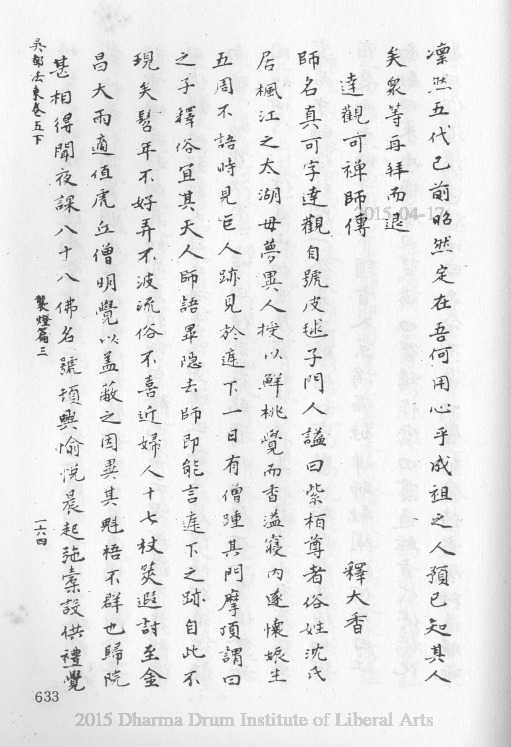 凜然五代已前昭然定在吾何用心乎成祖之人預已知其人
矣衆等再拜而退
達觀可禅師傳
釋大香
師名真可字達觀自號皮毬子門人謚曰紫栢尊者俗姓沈氏
居楓江之太湖毋夢異人授以鮮桃覺而香溢寢内遂懷娠生
五周不語時見巨人跡見於庭下一日有僧踵其門摩頂謂曰
之子釋俗宜其天人師語畢隐去師即能言庭下之跡自此不
現矣髫年不好弄不波流俗不喜近婦人十七杖筴遐討至金
昌大雨適值虎丘僧明覺以盖蔽之因異其魁梧不群也歸院
甚相得聞夜課八十八佛名號頓興愉悅晨起弛橐設供禮覺
吳都法乘卷五下
製燈篇三
一六四
633
2015-04-17
2015 Dharma Drum Institute of Liberal Arts